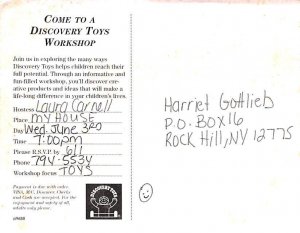 COME TO A
DISCOVERY TOYS
WORKSHOP
Join us in exploring the many ways
Discovery Toys helps children reach their
full potential. Through an informative and
fun-filled workshop, you'll discover cre-
ative products and ideas that will make a
life-long difference in your children's lives.
Hostess Laura Carnell
Place MY HOUSE
Day Wed. June 3RD
Time 7:00pm
Please R.S.V.P. by 6/1
Phone 794-5534
Workshop focus TOYS
Prepared to due with sales.
VISA, M/C, Discover, Checks
and Cash are accepted. For the
enjoyment and safety of all,
adults only please.
DISCOVERY TOYS
Harriet Gottlieb
P.O. BOX 16
ROCK HILL, NY 12775